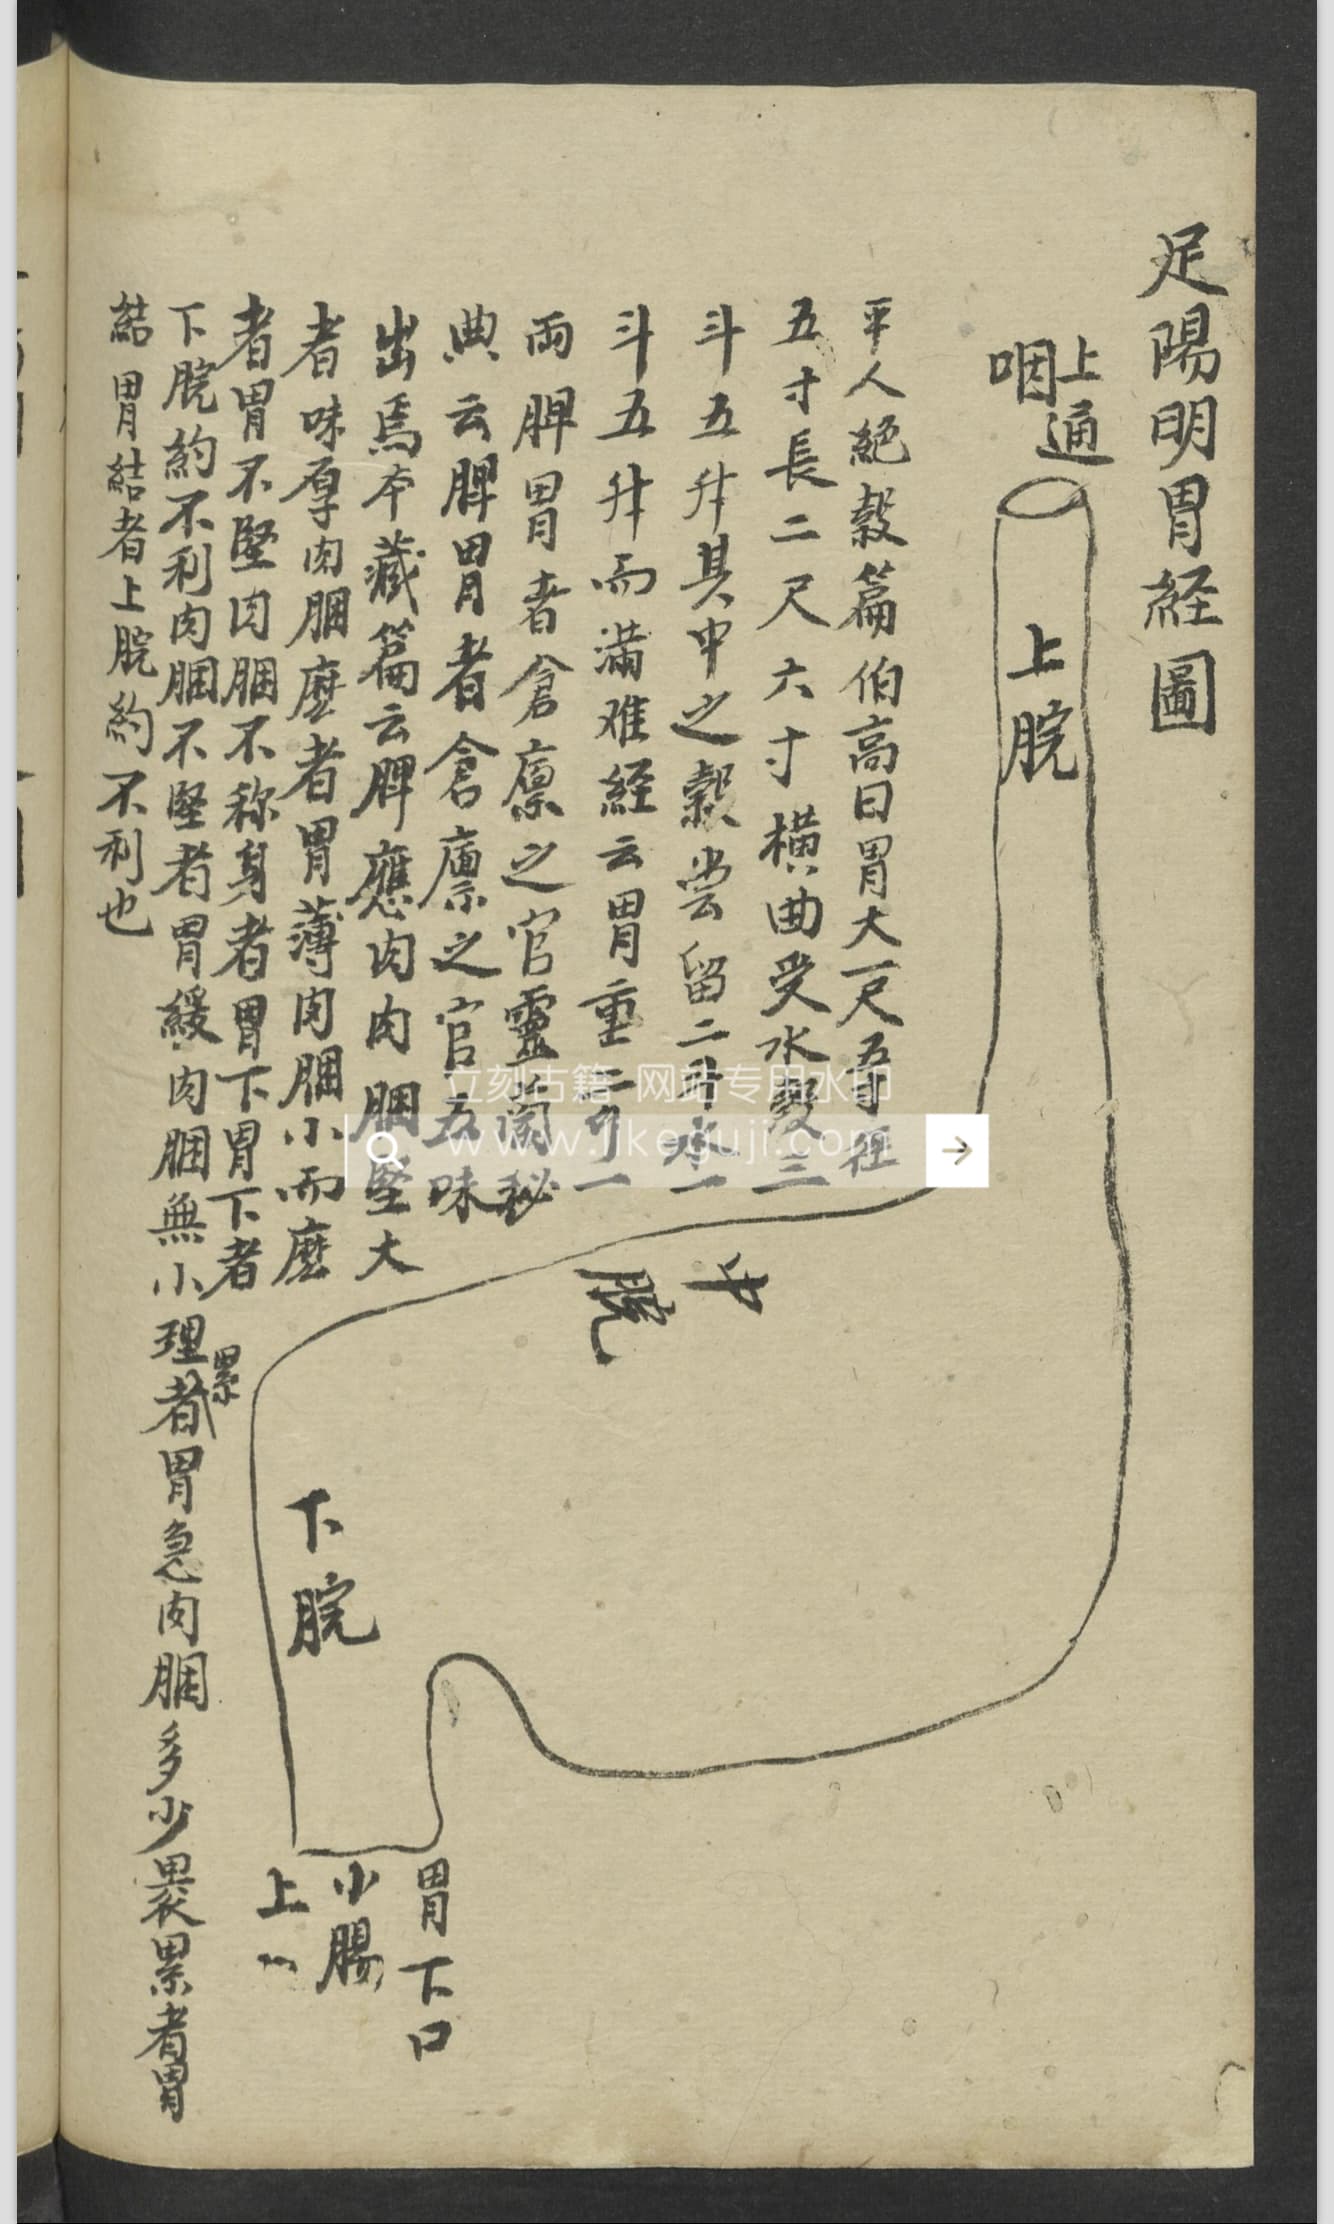 足陽明胃経圖
上通
咽
上脘
平人絕穀篇伯高曰胃大一尺五寸徑
五寸長二尺六寸橫曲受水穀三
斗五升其中之穀嘗留二斗水一
斗五升而滿难経云胃重二斤一
両脾胃者倉廪之官靈蘭秘
典云脾胃者倉廪之官五味
出焉本藏篇云脾應肉肉䐃堅大
者味厚肉䐃麽者胃薄肉䐃小而麽
者胃不堅肉䐃不称身者胃下胃下者
下脘約不利肉䐃不堅者胃緩肉䐃無小理者胃急肉䐃多少裹累者胃
累
結胃結者上脘約不利也
中
脘
下脘
胃下口
小腸
上
立刻古籍 网站专用水印
www.likeguji.com